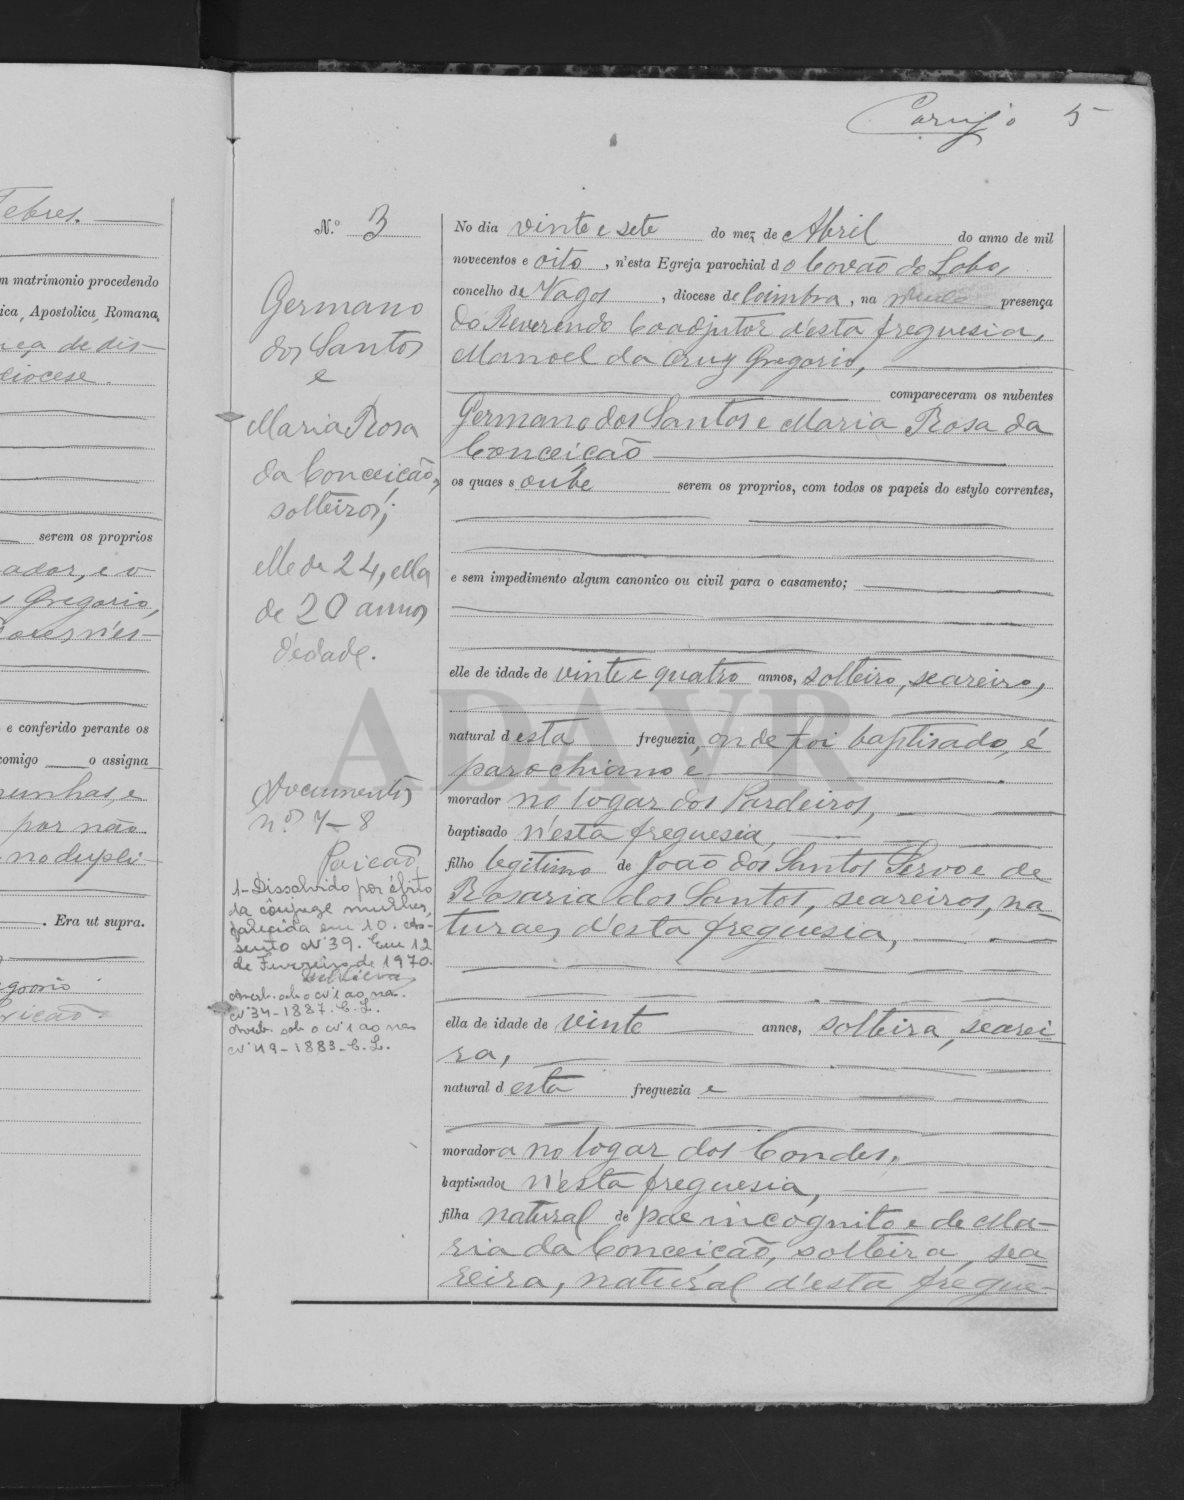 Carujo 5
Febres.
m matrimonio procedendo
ica, Apostolica, Romana,
nça de dis-
diocese.
serem os proprios
ador, e o
Gregorio,
n'es-
e conferido perante os
comigo o assigna
munhas, e
por não
no dupli-
. Era ut supra.
egorio
N.º 3
Germano
dos Santos
e
Maria Rosa
da Conceição,
solteiros;
elle de 24, ella
de 20 annos
d'edade.
Documentos
n.os 7-8
Paicão
1- Dissolvido por óbito
da cônjuge mulher,
falecida em 10. As-
sento Nº 39. Em 12
de Fevereiro de 1970.
Averb. sob o nº 1 ao nas.
nº 34-1887. C. L.
Averb. sob o nº 1 ao nas
nº 49-1883. C. L.
No dia vinte e sete do mez de Abril do anno de mil
novecentos e oito, n'esta Egreja parochial do Covão do Lobo,
concelho de Vagos, diocese de Coimbra, na presença
do Reverendo Coadjutor d'esta freguesia,
Manoel da Cruz Gregorio,
compareceram os nubentes
Germano dos Santos e Maria Rosa da
Conceição
os quaes soube serem os proprios, com todos os papeis do estylo correntes,
e sem impedimento algum canonico ou civil para o casamento;
elle de idade de vinte e quatro annos, solteiro, seareiro,
natural d'esta freguezia, onde foi baptisado, é
parochiano e
morador no logar dos Pardeiros,
baptisado n'esta freguesia,
filho legitimo de João dos Santos Servo e de
Rosaria dos Santos, seareiros, na-
turaes d'esta freguesia,
ella de idade de vinte annos, solteira, searei
ra,
natural d esta freguezia e
moradora no logar dos Condes,
baptisada n'esta freguesia,
filha natural de pae incognito e de Ma-
ria da Conceição, solteira, sea
reira, natural d'esta fregue-
ADAVR